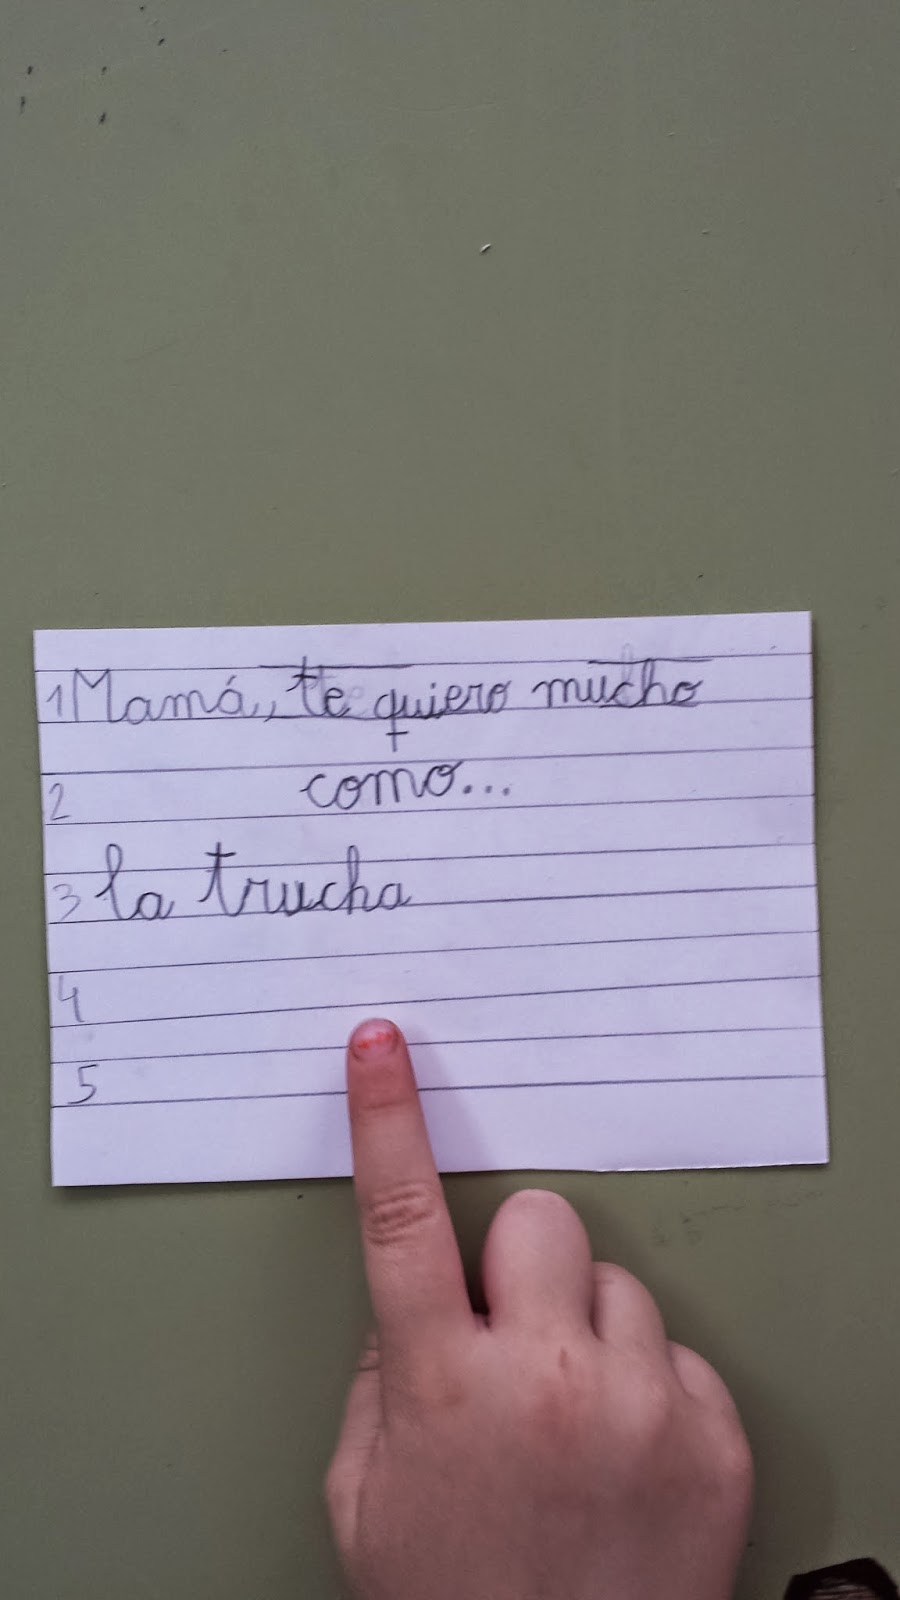 1 Mamá, te quiero mucho
2 como...
3 la trucha
4
5